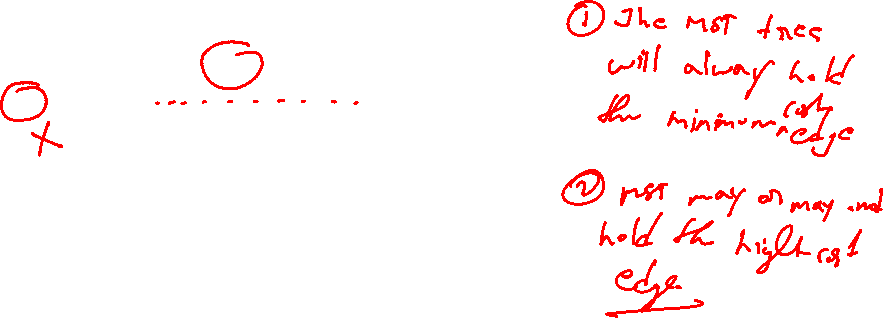 X
① The MST trees
will alway hold
the minimum costy edge
② MST may or may not
hold the highest cost
edge.